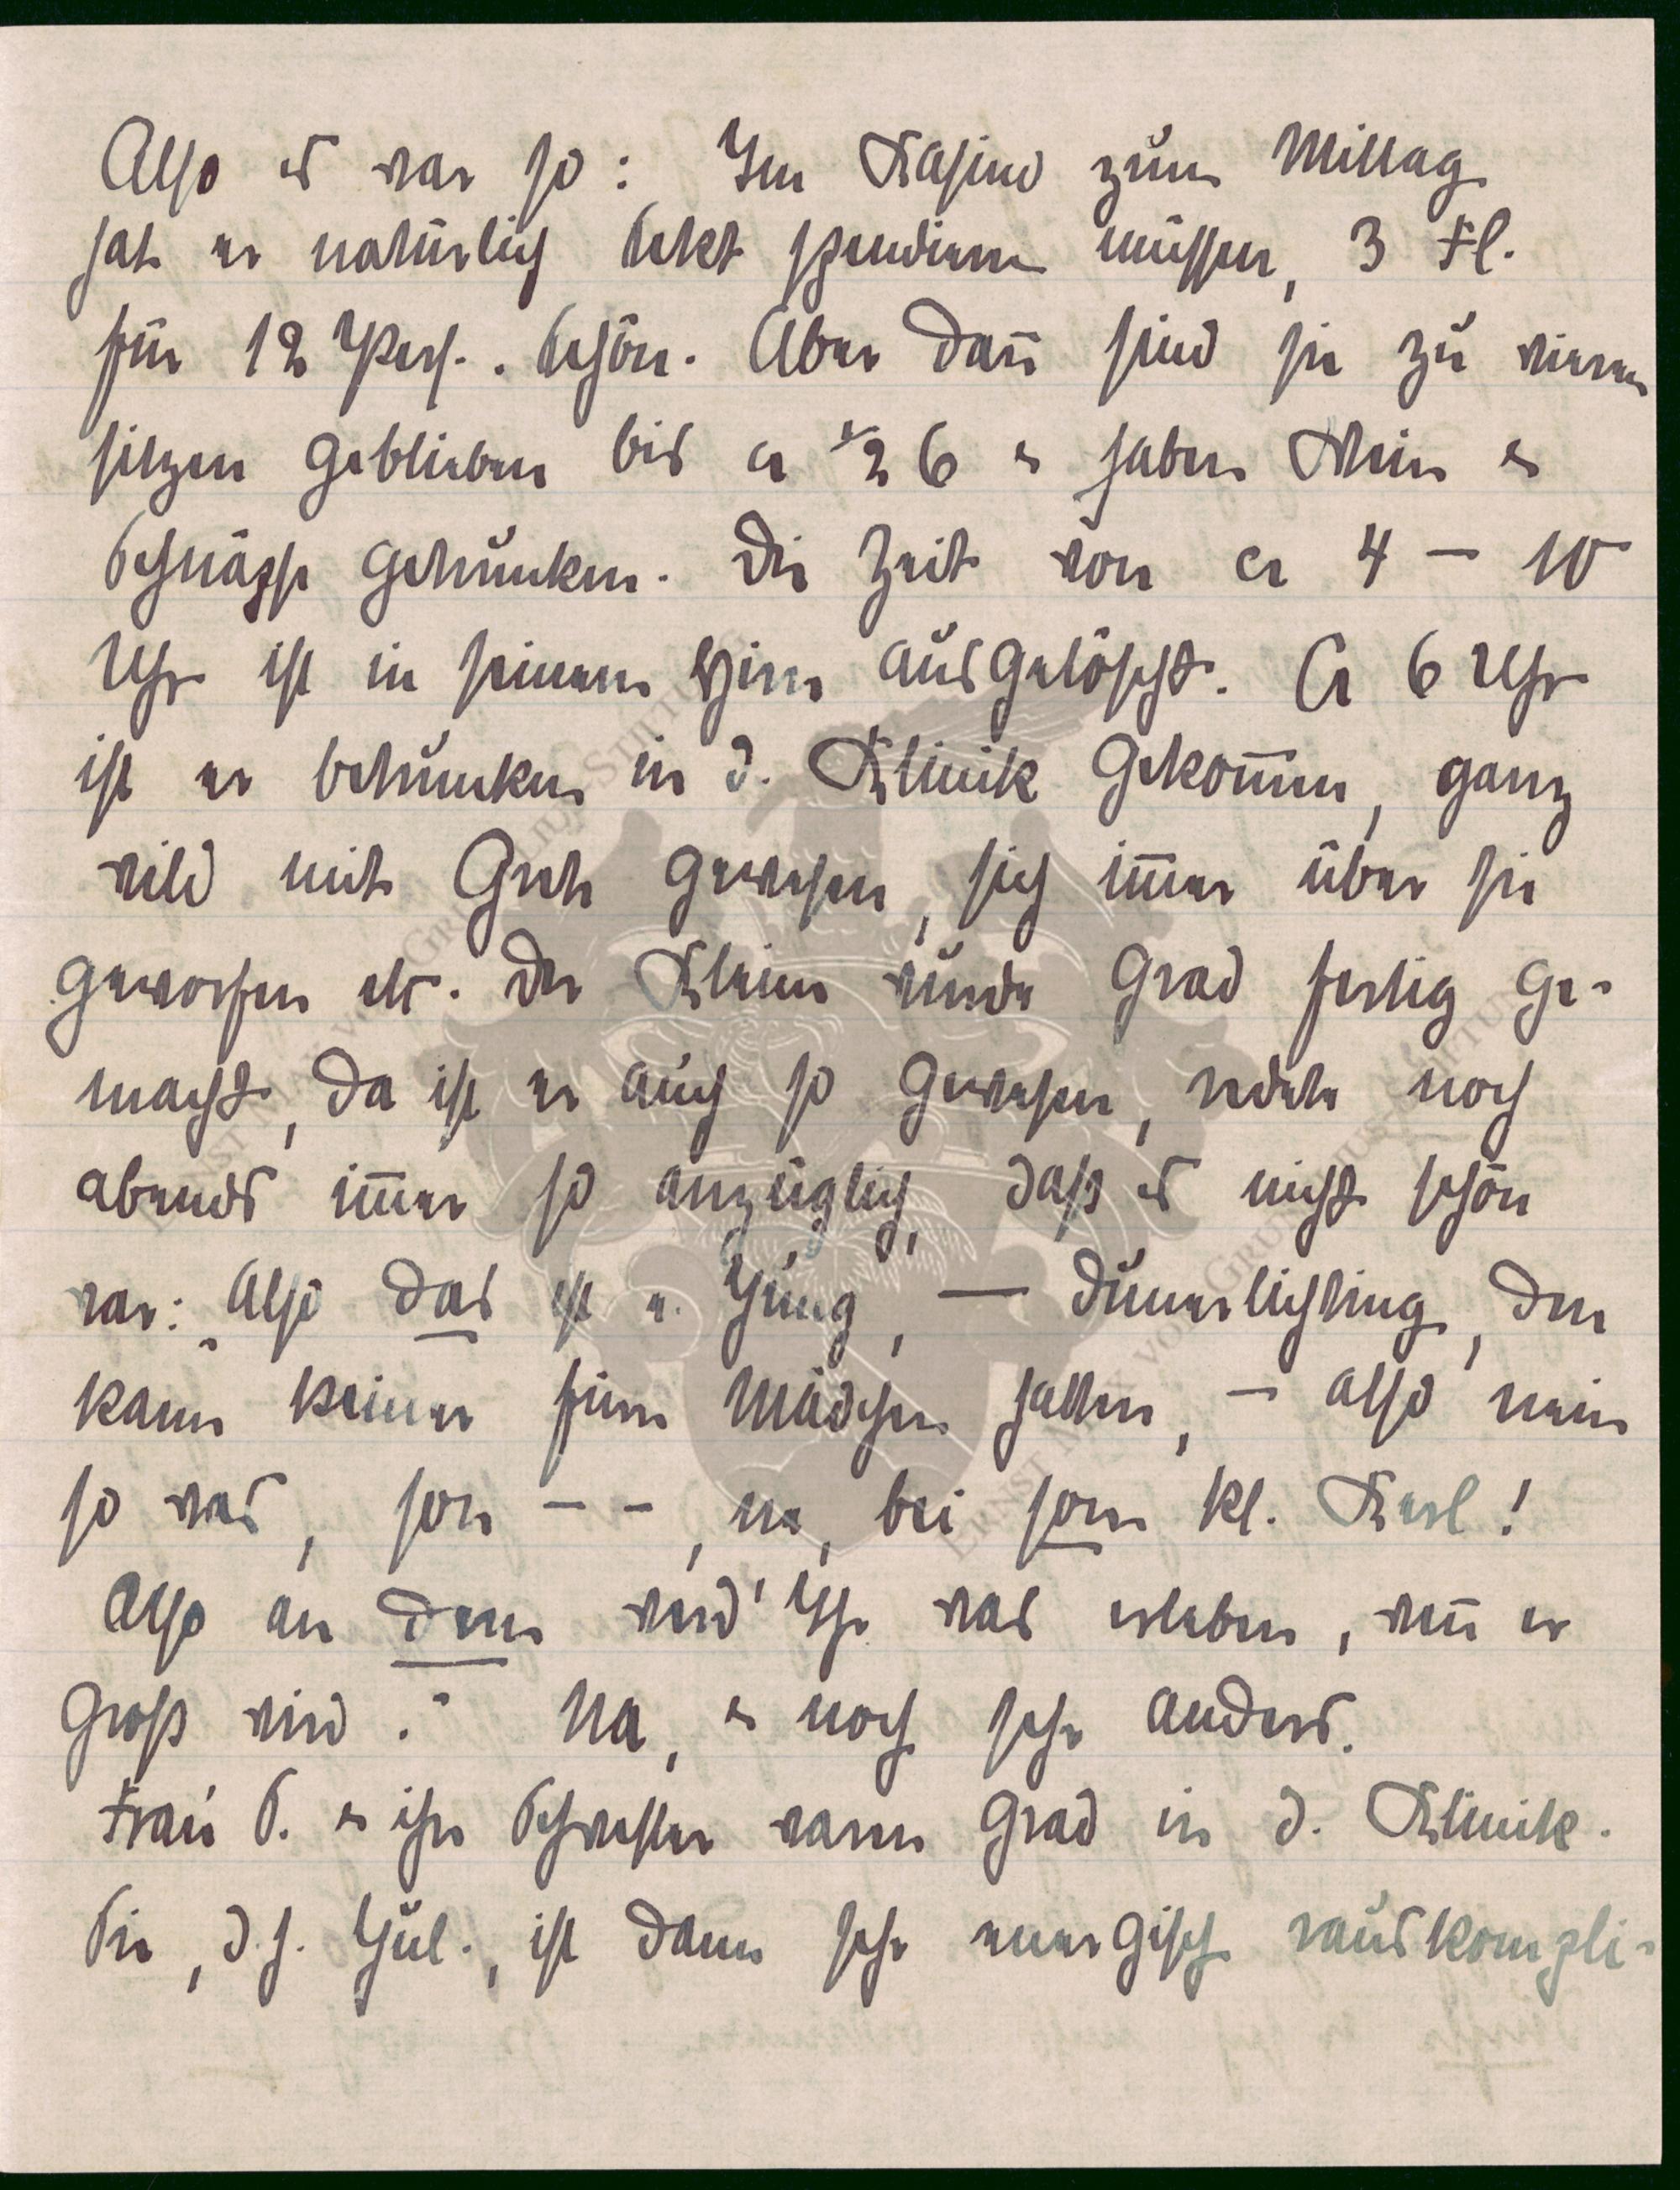 Also es war so: Im Kasino zum Mittag
hat er natürlich Sekt spendieren müssen, 3 Fl.
für 12 Pers.. Schön. Aber dañ sind sie zu vieren
sitzen geblieben bis ca ½ 6 u haben Wein u
Schnäpse getrunken. Die Zeit von ca 4 – 10
Uhr ist in seinem Hirn ausgelöscht. Ca 6 Uhr
ist er betrunken in d. Klinik gekom̄en, ganz
wild mit Grete gewesen, sich im̄er über sie
geworfen etc. Der Kleine wurde grad fertig ge-
macht, da ist er auch so gewesen, redete noch
abends im̄er so anzüglich, daß es nicht schön
war: „Also das ist e. Jung, — Dunnerlichting, den
kann keiner fürn Mädchen halten, – also nein
so was, son – –, na, bei som kl. Kerl!
Also an dem werd' Ihr was erleben, weñ er
groß wird." Na, u noch sehr anders.
Frau S. u ihre Schwester waren grad in d. Klinik.
Sie, d.h. Jul., ist dann sehr energisch rauskompli-